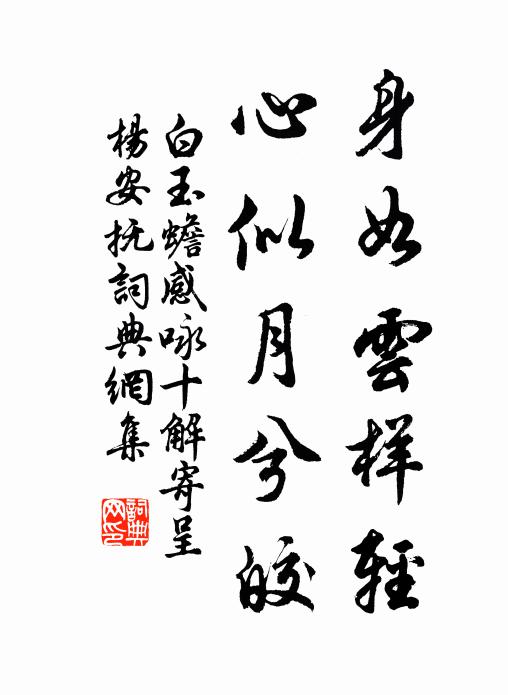 身如雲样輕
心似月兮皎
白玉蟾感咏十解寄呈
楊安抚詞典網集
詞典网印